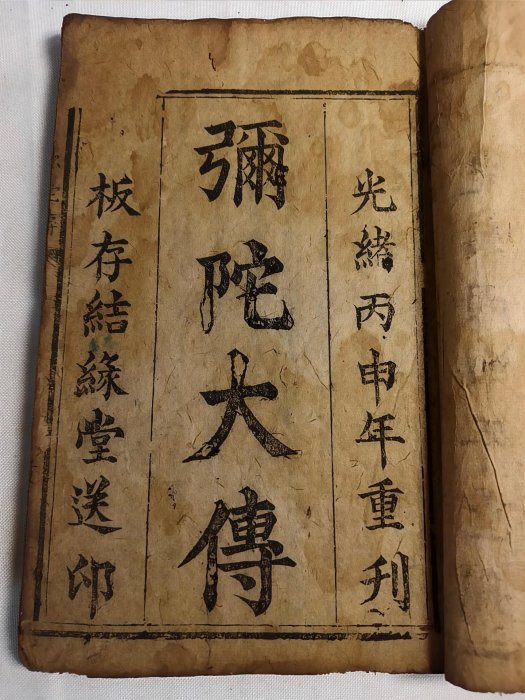 光緒丙申年重刋
彌陀大傳
板存結緣堂送印